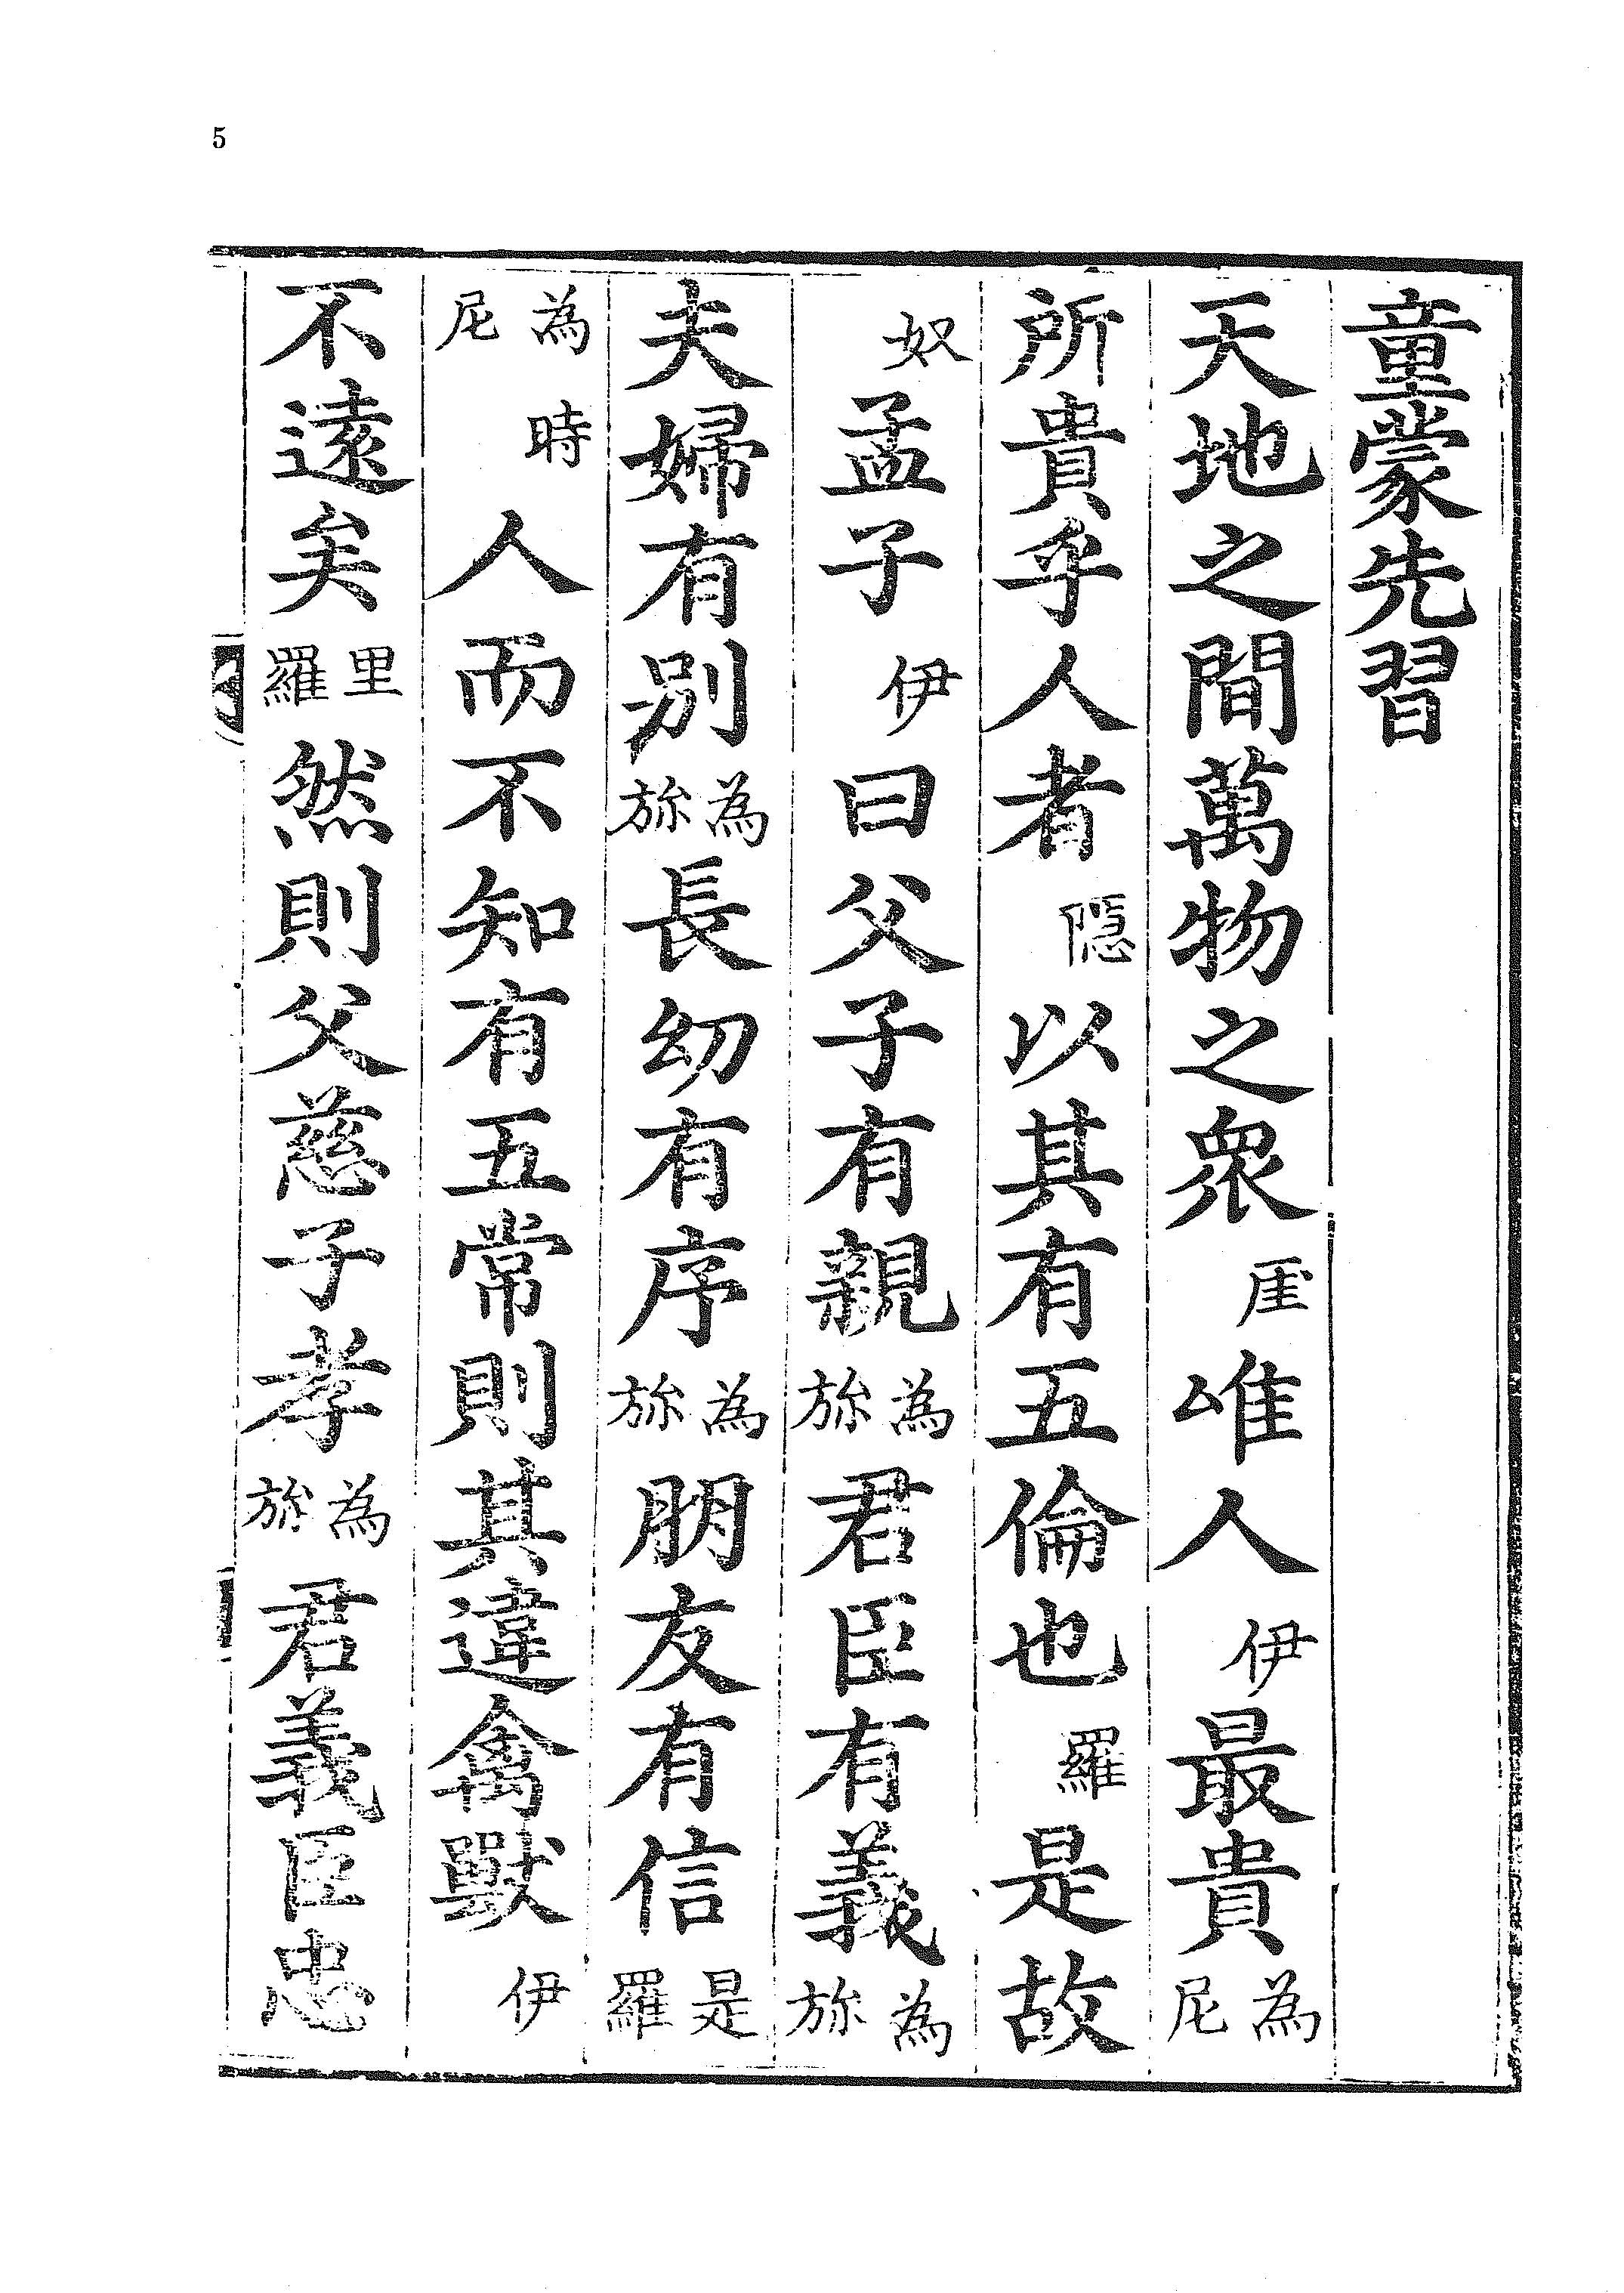 5
童蒙先習
天地之間萬物之衆厓唯人伊最貴為尼
所貴乎人者隠以其有五倫也羅是故
奴孟子伊曰父子有親為旀君臣有義為旀
夫婦有別為旀長幼有序為旀朋友有信是羅
為時尼人而不知有五常則其違禽獸伊
不遠矣里羅然則父慈子孝為旀君義臣忠